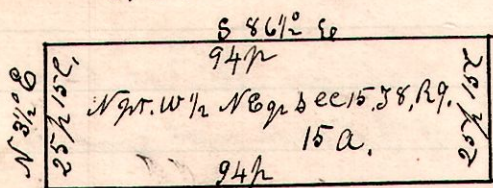 S 86½° E
94p
N 3½° E
25p 15l.
N pt. W ½ N E qr Sec 15. T 8, R 9.
15 a.
25p 15l
94p